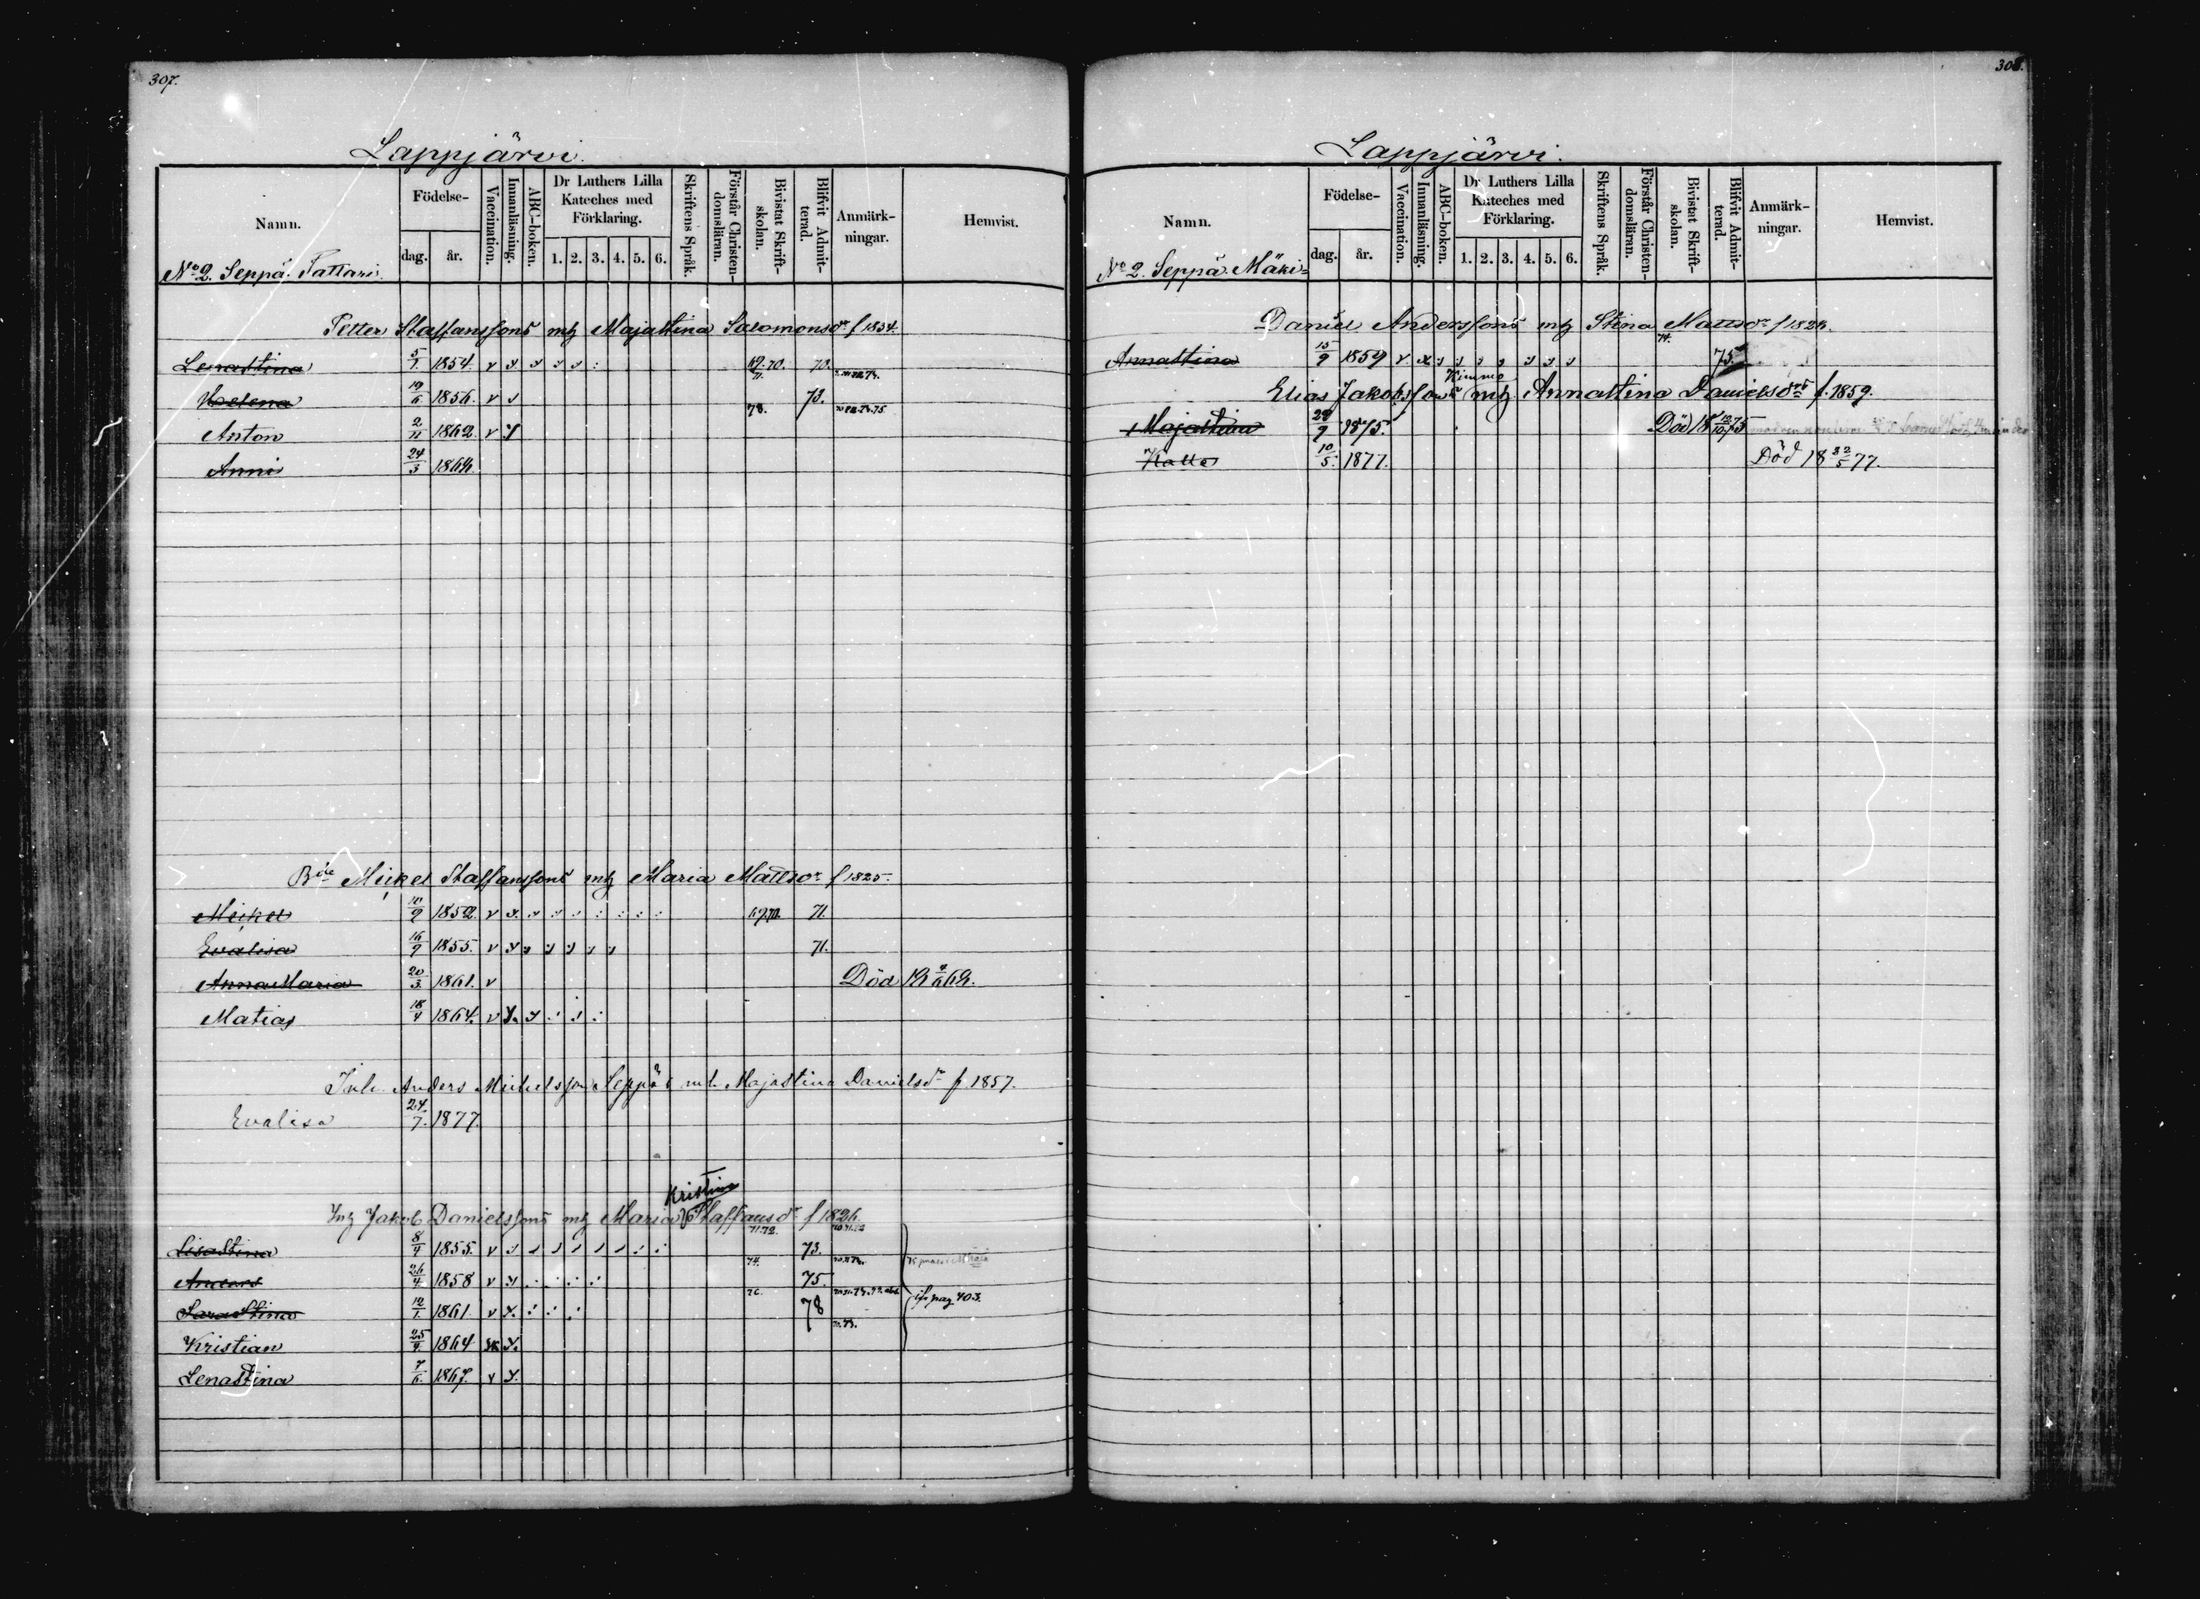 307.
Lappjärvi.
Namn. Födelse- dag. år. Vaccination. Innanläsning. ABC-boken. Dr Luthers Lilla Kateches med Förklaring. 1. 2. 3. 4. 5. 6. Skriftens Språk. Förstår Christendomsläran. Bivistat Skriftskolan. Blifvit Admitterad. Anmärkningar. Hemvist.
No 2. Seppä. Pattari.
Petter Staffanssons mh Majastina Salomonsdr f 1834.
Lenastina 5/7 1854. v 69.70. 71. 70.
Helena 19/6 1856. v 73.
Anton 2/11 1862 v 78.
Anni 24/3 1868.
Bde Mickel Staffanssons mh Maria Mattsdr f 1825.
Mickel 10/9 1852. v 69.70. 71.
Evalisa 16/9 1855. v 71.
Anna Maria 20/3 1861. v Död
Matias 18/4 1864. v
Inh. Anders Mickelsson Seppäs mh. Majastina Danielsdr f. 1857.
Evalisa 24/7. 1877.
Kristina
Inh Jakob Danielssons mh Maria Staffansdr f 1826.
Lisastina 8/4 1855. v 71.72. 73.
Anders 26/4 1858 v 74. 75.
Sarastina 12/1. 1861 v 76. 78 if. pag 403.
Kristian 25/9 1864
Lenastina 7/6. 1867. v
308.
Lappjärvi.
Namn. Födelse- dag. år. Vaccination. Innanläsning. ABC-boken. Dr Luthers Lilla Kateches med Förklaring. 1. 2. 3. 4. 5. 6. Skriftens Språk. Förstår Christendomsläran. Bivistat Skriftskolan. Blifvit Admitterad. Anmärkningar. Hemvist.
No 2. Seppä. Mäki=
Daniel Anderssons mh Stina Mattsdr f 1824.
Annastina 15/9 1859 v 74. 75.
Kimmo
Elias Jakobsson mh Annastina Danielsdrs f. 1859.
Majastina 29/9 1875. Död 18 12/10 75
Kalle 10/5. 1877. Död 18 22/5 77.